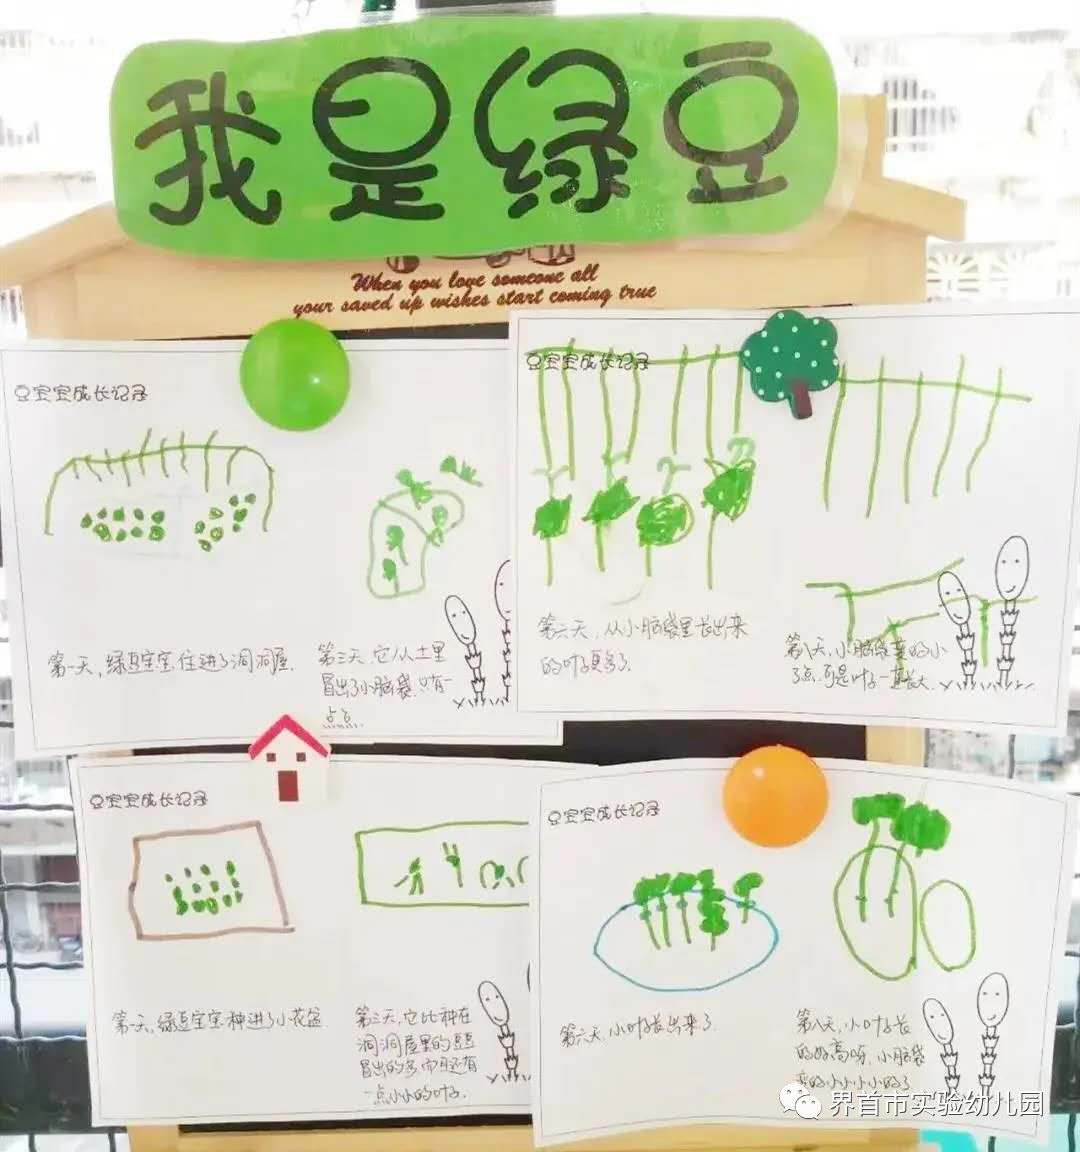 我是绿豆
When you love someone all
your saved up wishes start coming true
豆宝宝成长记录
第一天,绿豆宝宝住进了洞洞屋.
第三天,它从土里
冒出了小脑袋,只有一
点点.
豆宝宝成长记录
第六天,从小脑袋里长出来
的叶子更多了.
第八天,小脑袋变的小
了点,可是叶子一直长大.
豆宝宝成长记录
第一天,绿豆宝宝种进了小花盆
第三天,它比种在
洞洞屋里的豆豆
冒出的多,而且还有
一点小小的叶子.
豆宝宝成长记录
第六天,小叶子长出来了.
第八天,小叶子长
的好高呀,小脑袋
变的小小小小的了
界首市实验幼儿园